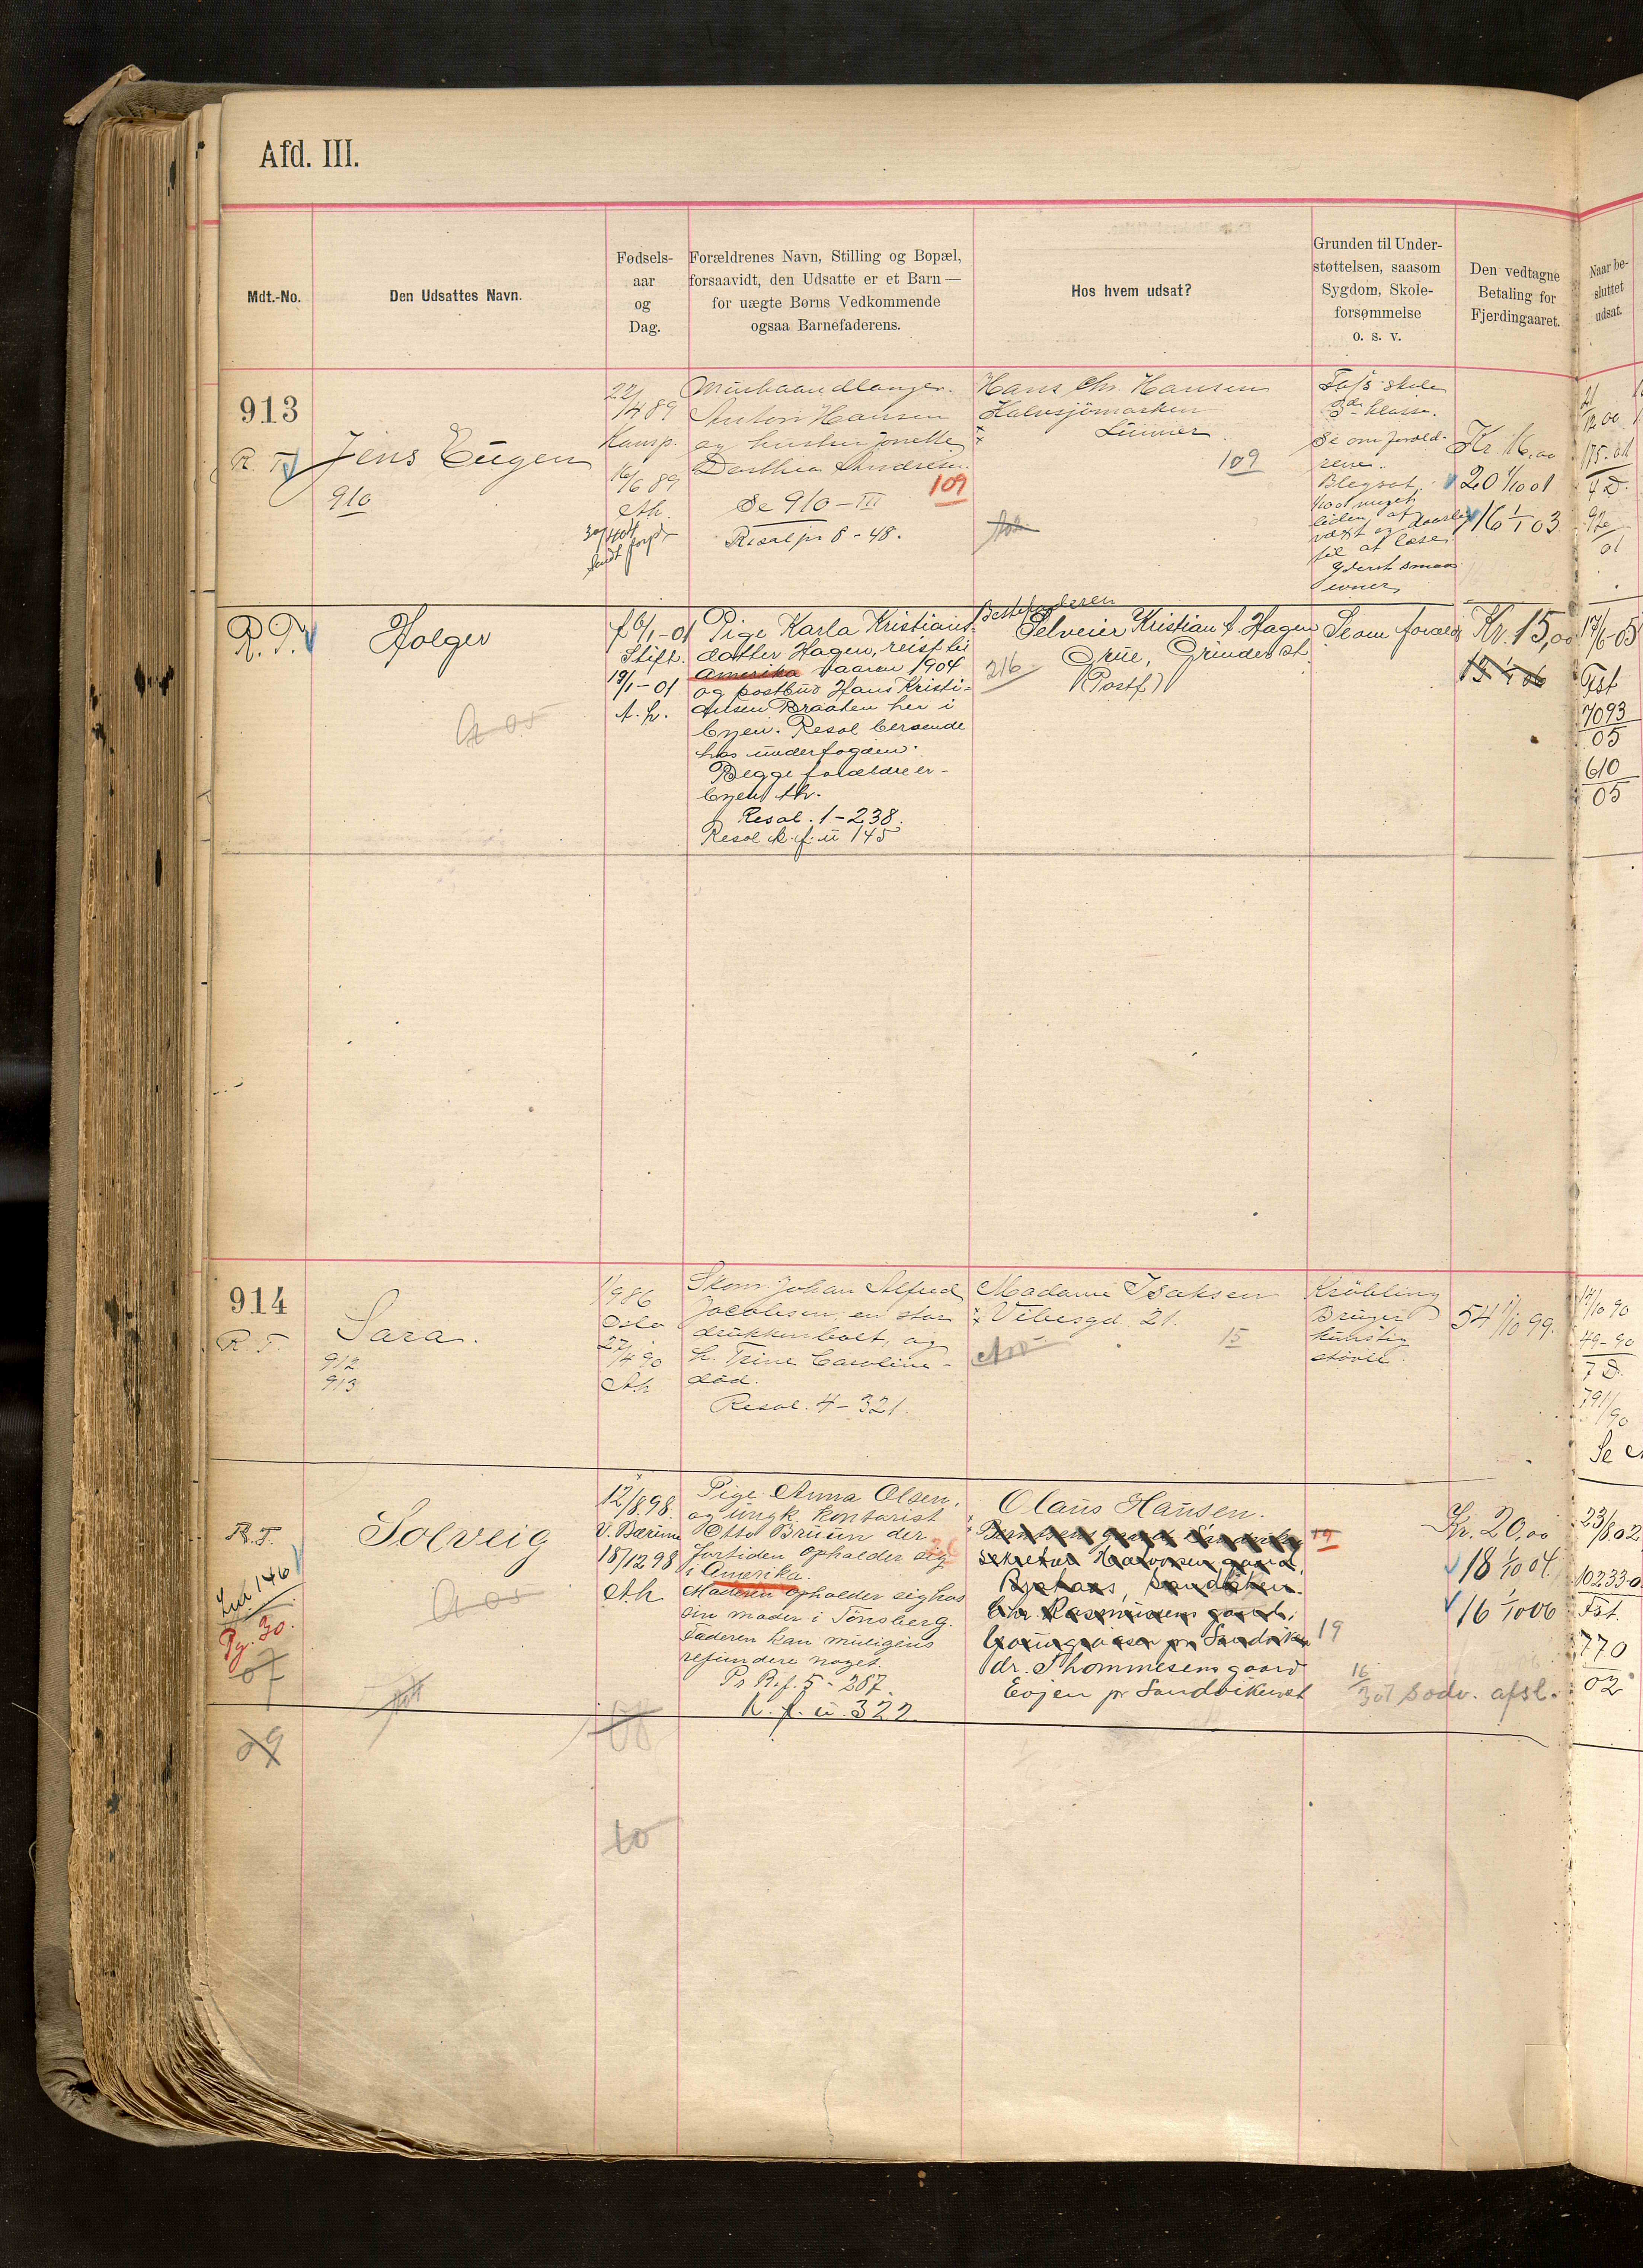 Afd. III.
Mdt.-No.
Den Udsattes Navn.
Fødsels-
aar
og
Dag.
Forældrenes Navn, Stilling og Bopæl,
forsaavidt, den Udsatte er et Barn —
for uægte Børns Vedkommende
ogsaa Barnefaderens.
Hos hvem udsat?
Grunden til Under-
støttelsen, saasom
Sygdom, Skole-
forsømmelse
o. s. v.
Den vedtagne
Betaling for
Fjerdingaaret.
Naar be-
sluttet
udsat.
913
R. T.
Jens Eugen
910
22/4 89
Kamp.
16/6 89
Ah.
Murhaandlanger
Anton Hansen
og hustru Jonette
Dorthea Andresen.
109
Se 910 - III
Resol pr 8 - 48.
Hans Chr. Hansen
Halvsjömarken
Lunner.
109
skole
3die klasse.
Se om foræld-
rene.
Blegsot.
liden af
væxt og daarlig
til at læse
yderst smaa
evner
Kr. 16,00
20 1/10 01
16 1/1 03
R. T.
Holger
f 6/1-01
Stift.
19/1-01
A. h.
Pige Karla Kristians-
datter Hagen, reist til
Amerika vaaren 1904
og postbud Hans Kristi-
ansen Braaten her i
byen. Resol beroende
hos underfogden.
Begge forældre er
byen th.
Resol. 1-238.
Resol k. f. u 145
Bestefaderen
Selveier Kristian A Hagen
Grue, Grinder st.
(Postf)
216
Se om foræld
Kr. 15,00
17/6 05
Fst
7093
05
610
05
914
R. T.
Sara.
912
913
1/9 86
Oslo
27/4 90
Ah
Skom. Johan Alfred
Jacobsen, en stor
drukkenbolt, og
h. Trine Caroline -
död.
Resol. 4 - 321.
Madame Isaksen
Vibesgd 21.
15
Kröbling
Bruger
kunstig
stövle.
54 1/10 99.
17/10 90
49-90
7 D.
791/90
R. T.
Solveig
12/8 98.
V. Bærum
18/12 98
Ah
Pige Anna Olsen,
og ungk. kontorist
Otto Bruun der
fortiden opholder sig
i Amerika.
Moderen opholder sig hos
sin moder i Tönsberg.
Faderen kan muligens
refundere noget.
Pr R. f. 5 - 287.
k. f. u. 322
Olaus Hansen.
19
dr. Thommesens gaard
Evjen pr Sandviken st
Kr. 20,00
18 1/10 04.
16 1/10 06
23/8 02
10233-0
Fst.
770
02
Pg. 30.
07
09
08
10